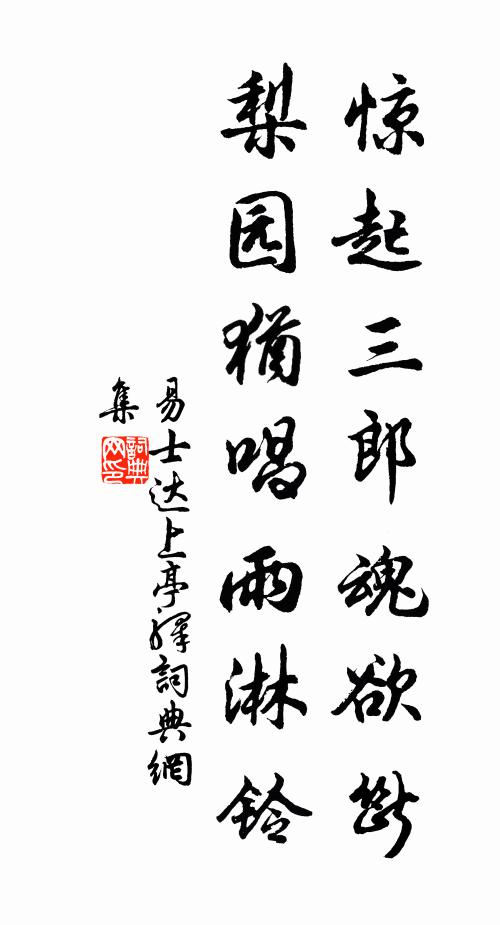 惊起三郎魂欲断
梨园猶唱雨淋铃
易士达上亭驿詞典網
集
詞典網印